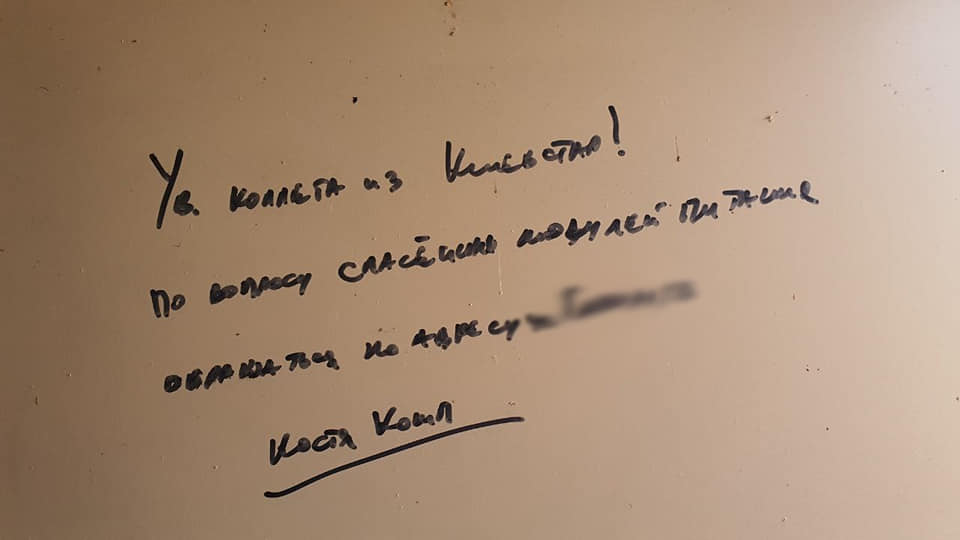 Ув. коллега из Киевстар!
По вопросу спасённых модулей питания
обращаться по адресу
Костя Кошп